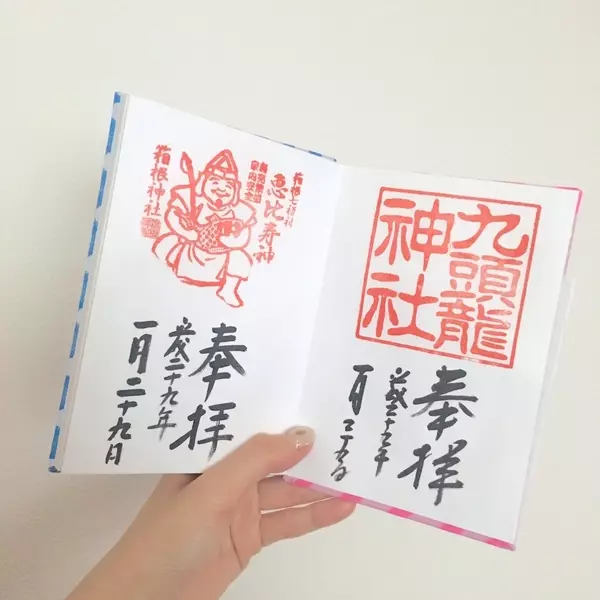 箱根七福神
恵比寿神
箱根神社
奉拝
平成二十九年
一月二十九日
九頭龍
神社
奉拝
平成二十九年
一月二十九日